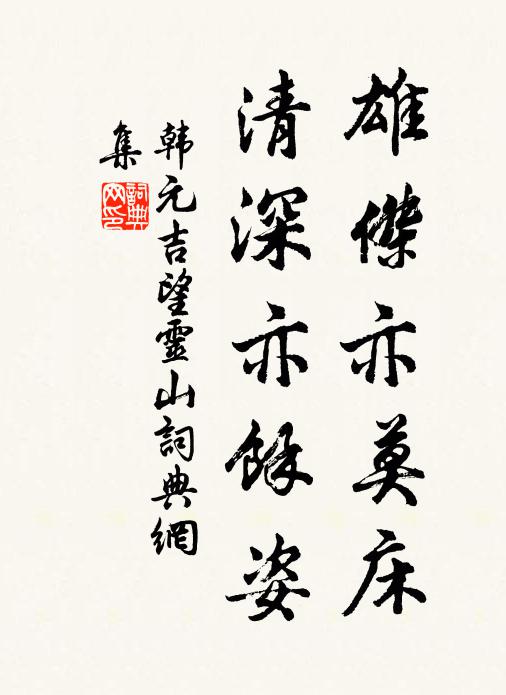 雄傑亦莫床
清深亦餘姿
韩元吉望靈山詞典網
集
詞典网印